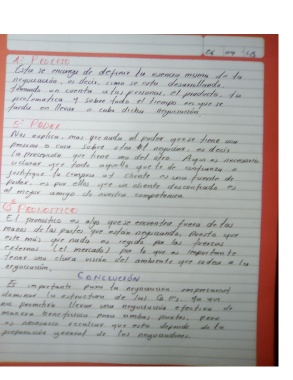 26 /09/
4° PROCESO
Esta se encarga de definir la esencia misma de la
negociación, es decir, como se esta desarrollando,
tomando en cuenta a las personas, el producto, la
problematica y sobre todo el tiempo en que se
tarda en llevar a cabo dicha negociación.
5° PODER
Nos explica, mas que nada el poder que se tiene una
persona o cosa sobre otra al negociar, es decir
la precepción que tiene uno del otro. Aqui es necesario
aclarar que todo aquello que te de confianza o
justifique la compra al cliente es una fuente de
poder, es por ello que un cliente descontrado es
el mejor amigo de nuestra competencia
6° PRONOSTICO
El pronostico es algo que se encuentra fuera de las
manos de las partes que estan negociando, puesto que
este más que nada es regido por las fuerzas
externas (el mercado) por lo que es importante
tener una clara visión del ambiente que rodea a la
negociación.
CONCLUSIÓN
Es importante para la negociación empresarial
dominar la estructura de las 6 P's, ya que
nos permitira llevar una negociación efectiva de
manera beneficiosa para ambas partes, pero
es necesario recalcar que esto depende de la
preparación general de los negociadores.